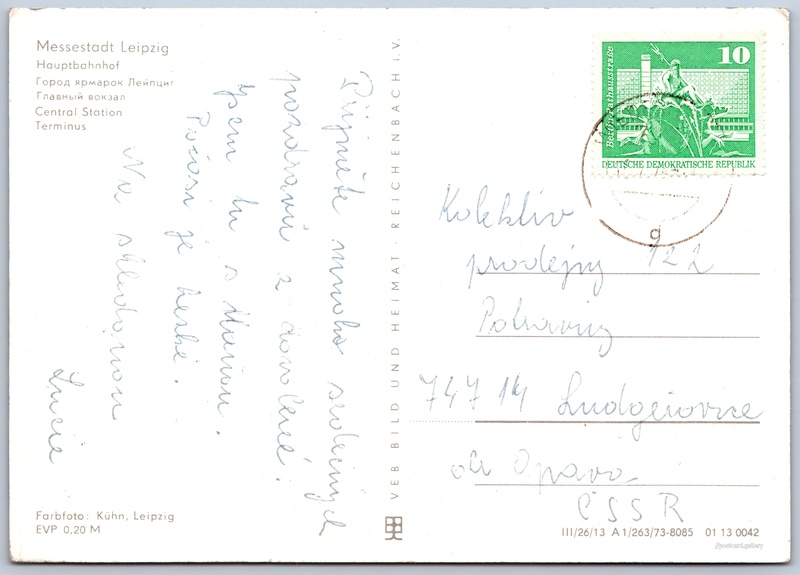 Messestadt Leipzig
Hauptbahnhof
Город ярмарок Лейпциг
Главный вокзал
Central Station
Terminus
Přijměte mnoho srdečných
pozdravů z dovolené.
Jsem tu s Mamou.
Počasí je hezké.
Na shledanou
Lucie
Farbfoto: Kühn, Leipzig
EVP 0,20 M
VEB BILD UND HEIMAT · REICHENBACH i.V.
10
Berlin, Rathausstraße
DEUTSCHE DEMOKRATISCHE REPUBLIK
g
Kolektiv
prodejny 122
Potraviny
747 14 Ludgeřovice
ok Opava
ČSSR
III/26/13 A 1/263/73-8085 01 13 0042
//postcard.gallery